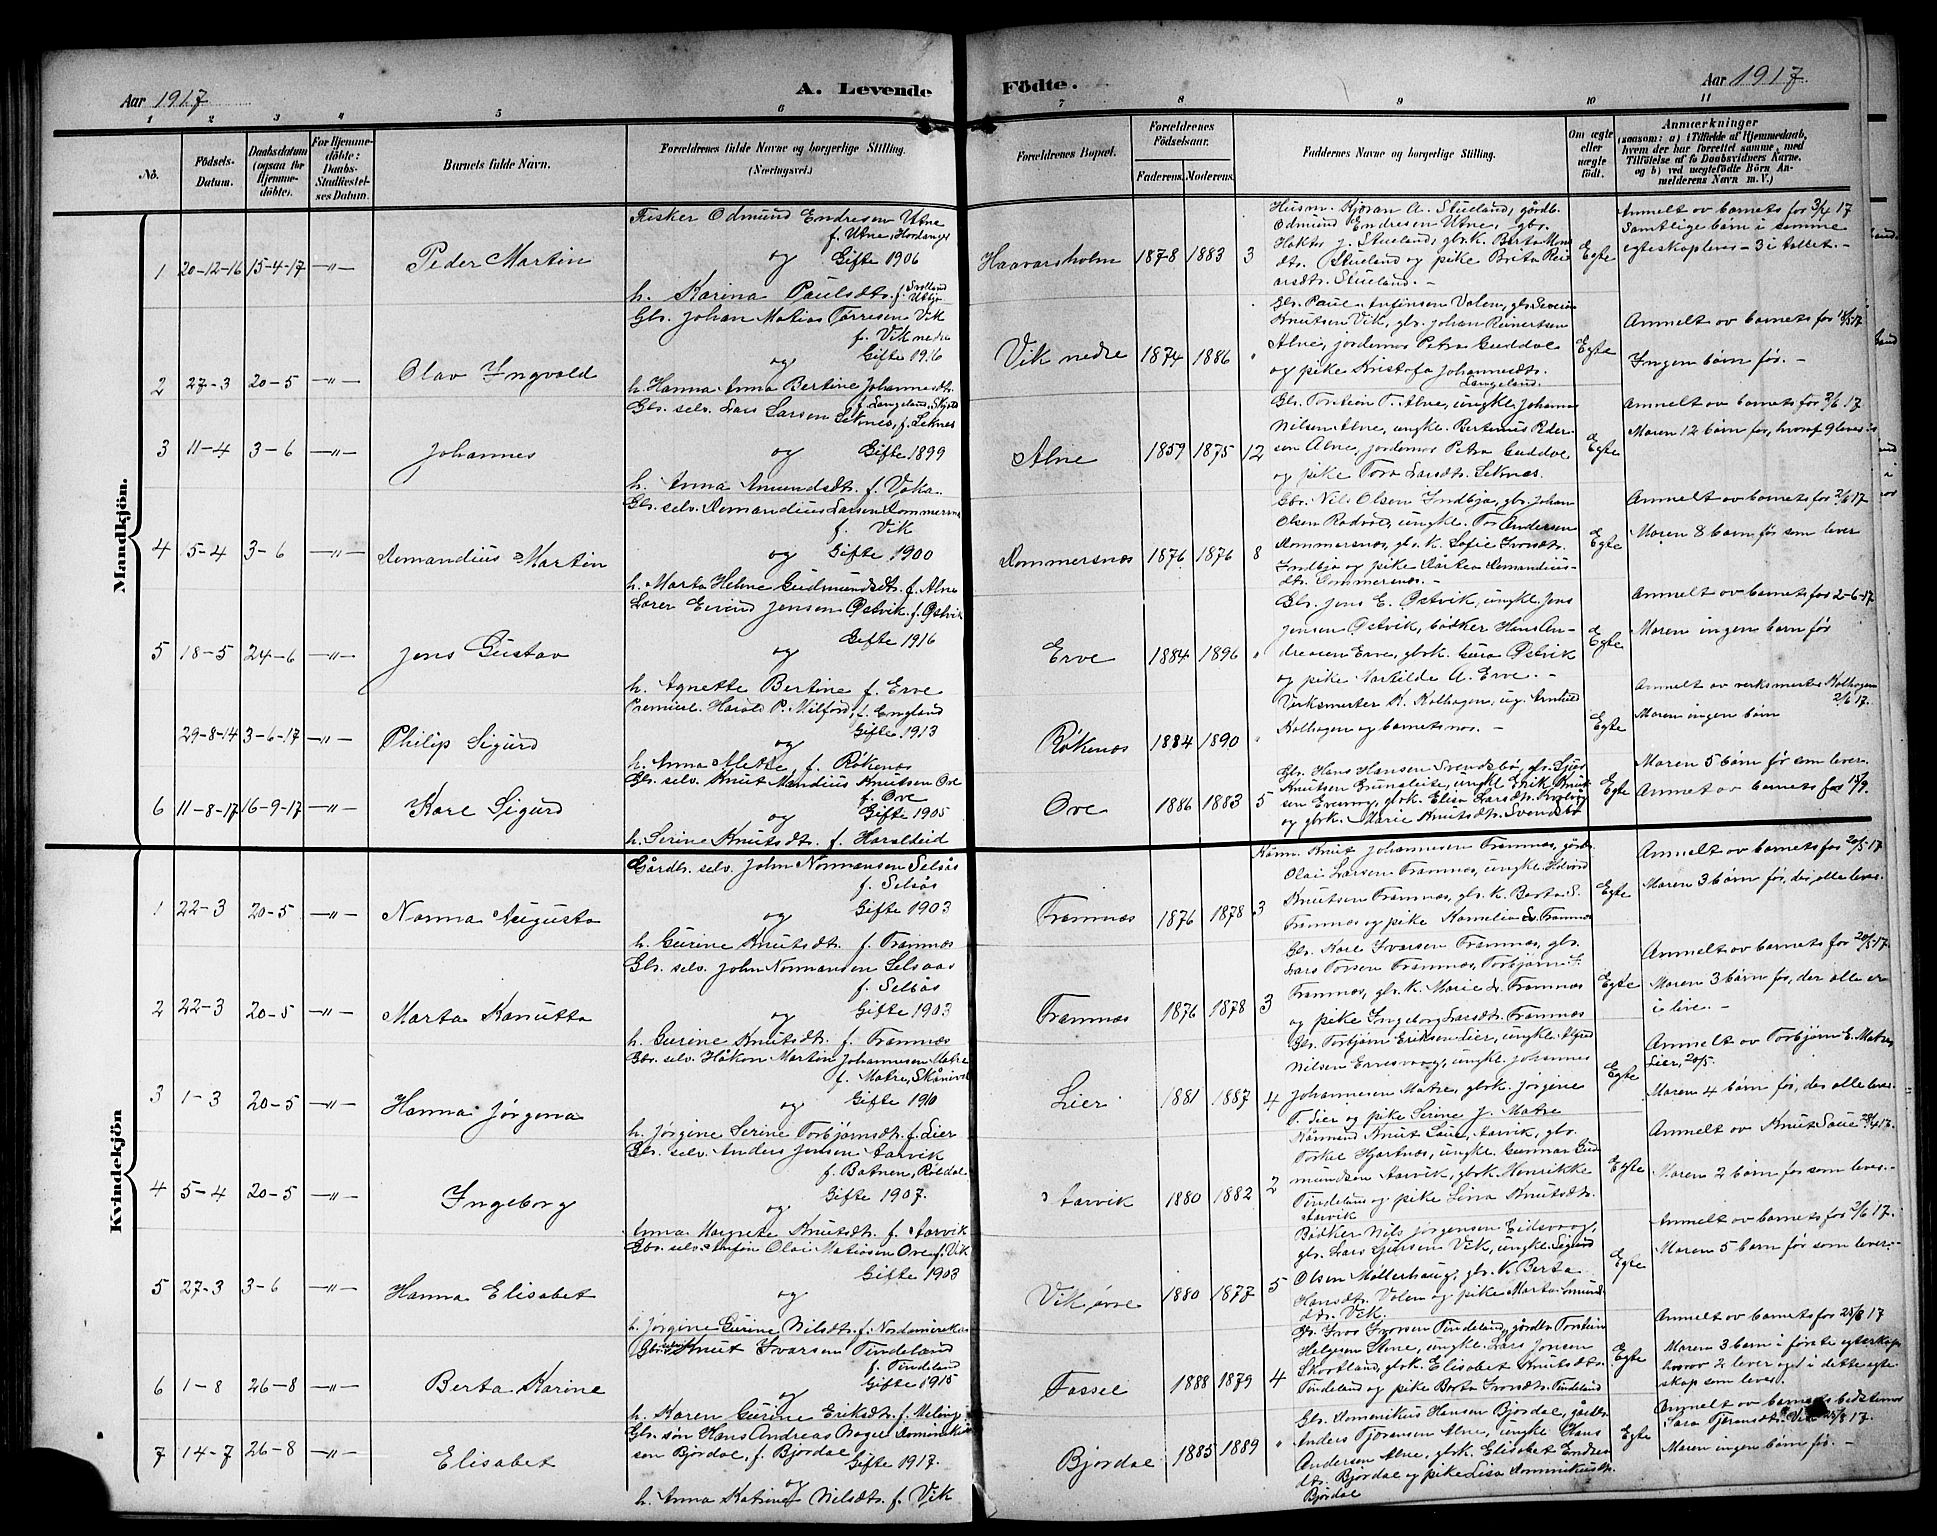 Aar 1917
A. Levende
Födte.
Aar 1917
1 2 3 4 5 6 7 8 9 10 11
No.
Födsels-
Datum.
Daabsdatum
(ogsaa for
Hjemme-
döbte).
For Hjemme-
döbte:
Daabs-
Stadfæstel-
ses Datum.
Barnets fulde Navn.
Forældrenes fulde Navne og borgerlige Stilling.
(Næringsvei.)
Forældrenes Bopæl.
Forældrenes
Födselsaar.
Faderens. Moderens.
Faddernes Navne og borgerlige Stilling.
Om ægte
eller
uægte
födt.
Anmærkninger
(saasom: a) i Tilfælde af Hjemmedaab,
hvem der har forrettet samme, med
Tilföielse af to Daabsvidners Navne,
og b) ved uægtefödte Börn An-
melderens Navn m. V.)
Mandkjön.
1 20-12-16 15-4-17 -"- Peder Martin
Fisker Odmund Endresen Utne
f. Utne, Hordanger
og Gifte 1906
h. Karina Paulsdtr. f.
Haavarsholm 1878 1883 3
Husm. Kjøran A. Stueland, gårdb.
Odmund Endresen Utne, gbr.
J. Stueland, gbrk. Berta
dtr. Stueland og pike Brita
arsdtr. Stueland. -
Egte
Anmelt av barnets far 3/4 17
Samtlige barn i samme
egteskap leves - 3 i tallet. -
2 27-3 20-5 -"- Olav Ingvald
Gbr. Johan Matias Tørresen Vik
f. Vik nedre
og Gifte 1916
h. Hanna Anna Bertine Johannesdtr.
f. Langeland,
Vik nedre 1874 1886 "
Gbr. Paul Anfinsen Valen, gbr. Severin
Knutsen Vik, gbr. Johan Reinertsen
Alne, jordemor Petra Guddal
og pike Kristofa Johannesdtr.
Langeland.
Egte
Anmelt av barnets far
Ingen barn før. -
3 11-4 3-6 -"- Johannes
Gbr. selv. Lars Larsen Seknes, f. Leknes
og Gifte 1899
h. Anna Amundsdtr. f. Vaka.
Alne 1859 1875 12
Gbr. Torstein T. Alne, ungk. Johannes
Nilsen Alne, ungk. Bertinius Peder-
sen Alne, jordemor Petra Guddal
og pike Tora Larsdtr. Seknes.
Egte
Anmelt av barnets far 2/6 17
Moren 12 barn før, hvoraf 9 leves
4 5-4 3-6 -"- Amandius Martin
Gbr. selv. Amandius Larsen Ommersnes
f. Vik
og Gifte 1900
h. Marta Helene Gudmundsdtr. f. Alne
Ommersnæs 1876 1876 8
Gbr. Nils Olsen Indbjo, gbr. Johan
Olsen Ungk. Tor Andersen
Ommersnæs, gbr. k. Sofie Ivarsdtr.
Indbjo og pike Amandius-
dtr. Ommersnæs. -
Egte
Anmelt av barnets far 2/6 17
Moren 8 barn før som lever
5 18-5 24-6 -"- Jens Gustav
Lærer Eivind Jensen Østvik f. Østvik
Gifte 1916
og
h. Agnette Bertine f. Erve
Erve 1884 1896 "
Gbr. Jens E. Østvik, ungk. Jens
Jensen Østvik, bødker Hans An-
dreasen Erve, gbrk. Guro Østvik
og pike Matilde A. Erve. -
Egte
Anmelt av barnets far 2-6-17
Moren ingen barn før
29-8-14 3-6-17 -"- Philip Sigurd
Harald P. Milford, f. England
Gifte 1913
og
h. Anna Mette, f. Røkenæs
Røkenæs 1884 1890 "
Verksmester K. Kolhagen, ug.
Kolhagen og barnets mor. -
Egte
Anmelt av verksmester Kolhagen
2/6 17.
Moren ingen barn
6 11-8-17 16-9-17 -"- Kåre Sigurd
Gbr. selv. Knut Mandius Knutsen Ove
f. Ove
Gifte 1905
og
h. Serine Knutsdtr. f. Haraldeid
Ove 1886 1883 5
Gbr. Hans Hansen Svendsbø, gbr.
Knutsen ungk. Erik Knut-
sen gbrk. Elisa Larsdtr.
og gbrk. Marie Knutsdtr. Svendsbø
Egte
Moren 5 barn før som lever.
Anmelt av barnets far 15/9.
Kvindekjön
1 22-3 20-5 -"- Nanna Augusta
Gårdbr. selv. John Normansen Selsås
f. Selsås
Gifte 1903
og
h. Gurine Knutsdtr. f. Framnæs
Framnæs 1876 1878 3
Kårm. Knut Johannesen Framnæs, gårdbr.
Olai Larsen Framnæs, ungk. Halvard
Knutsen Framnæs, gbr. k. Berta S.
Framnæs og pike Kornelia L. Framnæs
Egte
Anmelt av barnets far 20/5 17
Moren 3 barn før, des alle leves.
2 22-3 20-5 -"- Marta Kanutta
Gbr. selv. John Normansen Selsaas
f. Selsås
Gifte 1903
og
h. Gurine Knutsdtr. f. Framnæs
Framnæs 1876 1878 3
Gbr. Kåre Ivarsen Framnæs, gbr.
Lars Torsen Framnæs, Torbjørn S.
Framnæs, gbr. k. Marie L. Framnæs
og pike Ingeborg Larsdtr. Framnæs
Egte
Anmelt av barnets far 20/5 17.
Moren 3 barn før, der alle er
i live. -
3 1-3 20-5 -"- Hanna Jørgena
Gbr. selv. Håkon Martin Johannesen Matre
f. Matre, Skånevik
og Gifte 1910
h. Jørgine Serine Torbjørnsdtr. f. Lier
Lier 1881 1887 4
Gbr. Torbjørn Eriksen Lier, ungk. Alfred
Nilsen ungk. Johannes
Johannesen Matre, gbrk. Jørgine
T. Lier og pike Serine J. Matre
Egte
Anmelt av Torbjørn E. Matre,
Lier, 20/5.
Moren 4 barn før, des alle leves.
4 5-4 20-5 -"- Ingeborg
Gbr. selv. Anders Jensen Aarvik
f. Botnen, Røldal
Gifte 1907.
og
Anna Margrete Knutsdtr. f. Aarvik
Aarvik 1880 1882 2
Kårmand Knut Saue, Aarvik, gbr.
Torkel Hjartnæs, ungk. Gunnar Gud-
mundsen Aarvik, gbrk. Henrikke
Tindeland og pike Lina Knutsdtr.
Aarvik
Egte
Anmelt av Knut Saue 28/4 17.
Moren 2 barn før som leves.
5 27-3 3-6 -"- Hanna Elisabet
Gbr. selv. Anfin Olai Matiasen Ove f. Vik
Gifte 1903
og
h. Jørgine Gurine Nilsdtr. f. Nordamerika
Vik øvre 1880 1877 5
Bødker Nils Jørgensen Eidsvaag,
gbr. Lars Vik, ungk. Sigurd
Olsen Møllerhaug, gbr. k. Berta
Hansdtr. Valen og pike Marta
dtr. Vik
Egte
Anmelt av barnets far 2/6 17.
Moren 5 barn før som lever. -
6 1-8 26-8 -"- Berta Karine
Gbr. Knut Ivarsen Tindeland
f. Tindeland
Gifte 1915
og
h. Karen Gurine Eriksdtr. f.
1888 1879 4
Gbr. Ivar Ivarsen Tindeland, gårdbr. Torstein
Helgesen ungk. Lars Jonsen
gbrk. Elisabet Knutsdtr.
Tindeland og pike Berta Ivarsdtr. Tindeland
Egte
Anmelt av barnets far 25/8 17
Moren 3 barn i første egteskap
hvorav 2 lever og 1 i dette egte
skap som lever.
7 14-7 26-8 -"- Elisabet
Gbr. søn Hans Andreas Dominikus-
sen Bjørdal, f. Bjørdal Gifte 1917.
og
h. Anna Katrine Nilsdtr. f. Vik
Bjørdal 1885 1889 "
Gbr. Domenikus Hansen Bjørdal, gårdbr.
Anders Alne, ungk. Hans
Andersen Alne, gbrk. Elisabet
dtr. Bjørdal og pike Lisa Dominikusdtr.
Bjørdal
Egte
Anmelt av barnets bedstemor
17.
Moren ingen barn før. -